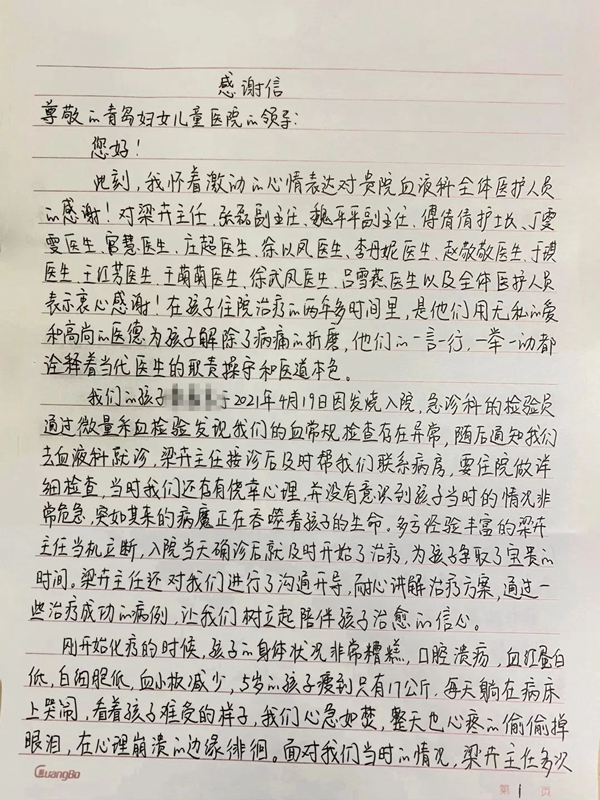 感谢信
尊敬的青岛妇女儿童医院的领导:
您好!
此刻,我怀着激动的心情表达对贵院血液科全体医护人员
的感谢!对梁卉主任、张磊副主任、魏平平副主任、傅倩倩护士长、丁雯
雯医生、宫慧医生、庄超医生、徐以凤医生、李丹妮医生、赵敬敬医生、于薇
医生、王红芳医生、王蘭蘭医生、徐武凤医生、吕雪燕医生以及全体医护人员
表示衷心感谢!在孩子住院治疗的两年多时间里,是他们用无私的爱
和高尚的医德为孩子解除了病痛的折磨,他们的一言一行,一举一动都
诠释着当代医生的职责操守和医道本色。
我们的孩子 于2021年4月19日因发烧入院,急诊科的检验员
通过微量采血检验发现我们的血常规检查存在异常,随后通知我们
去血液科就诊,梁卉主任接诊后及时帮我们联系病房,要住院做详
细检查,当时我们还存有侥幸心理,并没有意识到孩子当时的情况非
常危急,突如其来的病魔正在吞噬着孩子的生命。多亏经验丰富的梁卉
主任当机立断,入院当天确诊后就及时开始了治疗,为孩子争取了宝贵的
时间。梁卉主任还对我们进行了沟通开导,耐心讲解治疗方案,通过一
些治疗成功的病例,让我们树立起陪伴孩子治愈的信心。
刚开始化疗的时候,孩子的身体状况非常糟糕,口腔溃疡,血红蛋白
低,白细胞低,血小板减少,5岁的孩子瘦到只有17公斤,每天躺在病床
上哭闹,看着孩子难受的样子,我们心急如焚,整天也心疼的偷偷掉
眼泪,在心理崩溃的边缘徘徊。面对我们当时的情况,梁卉主任多次
GuangBo
第 1 页